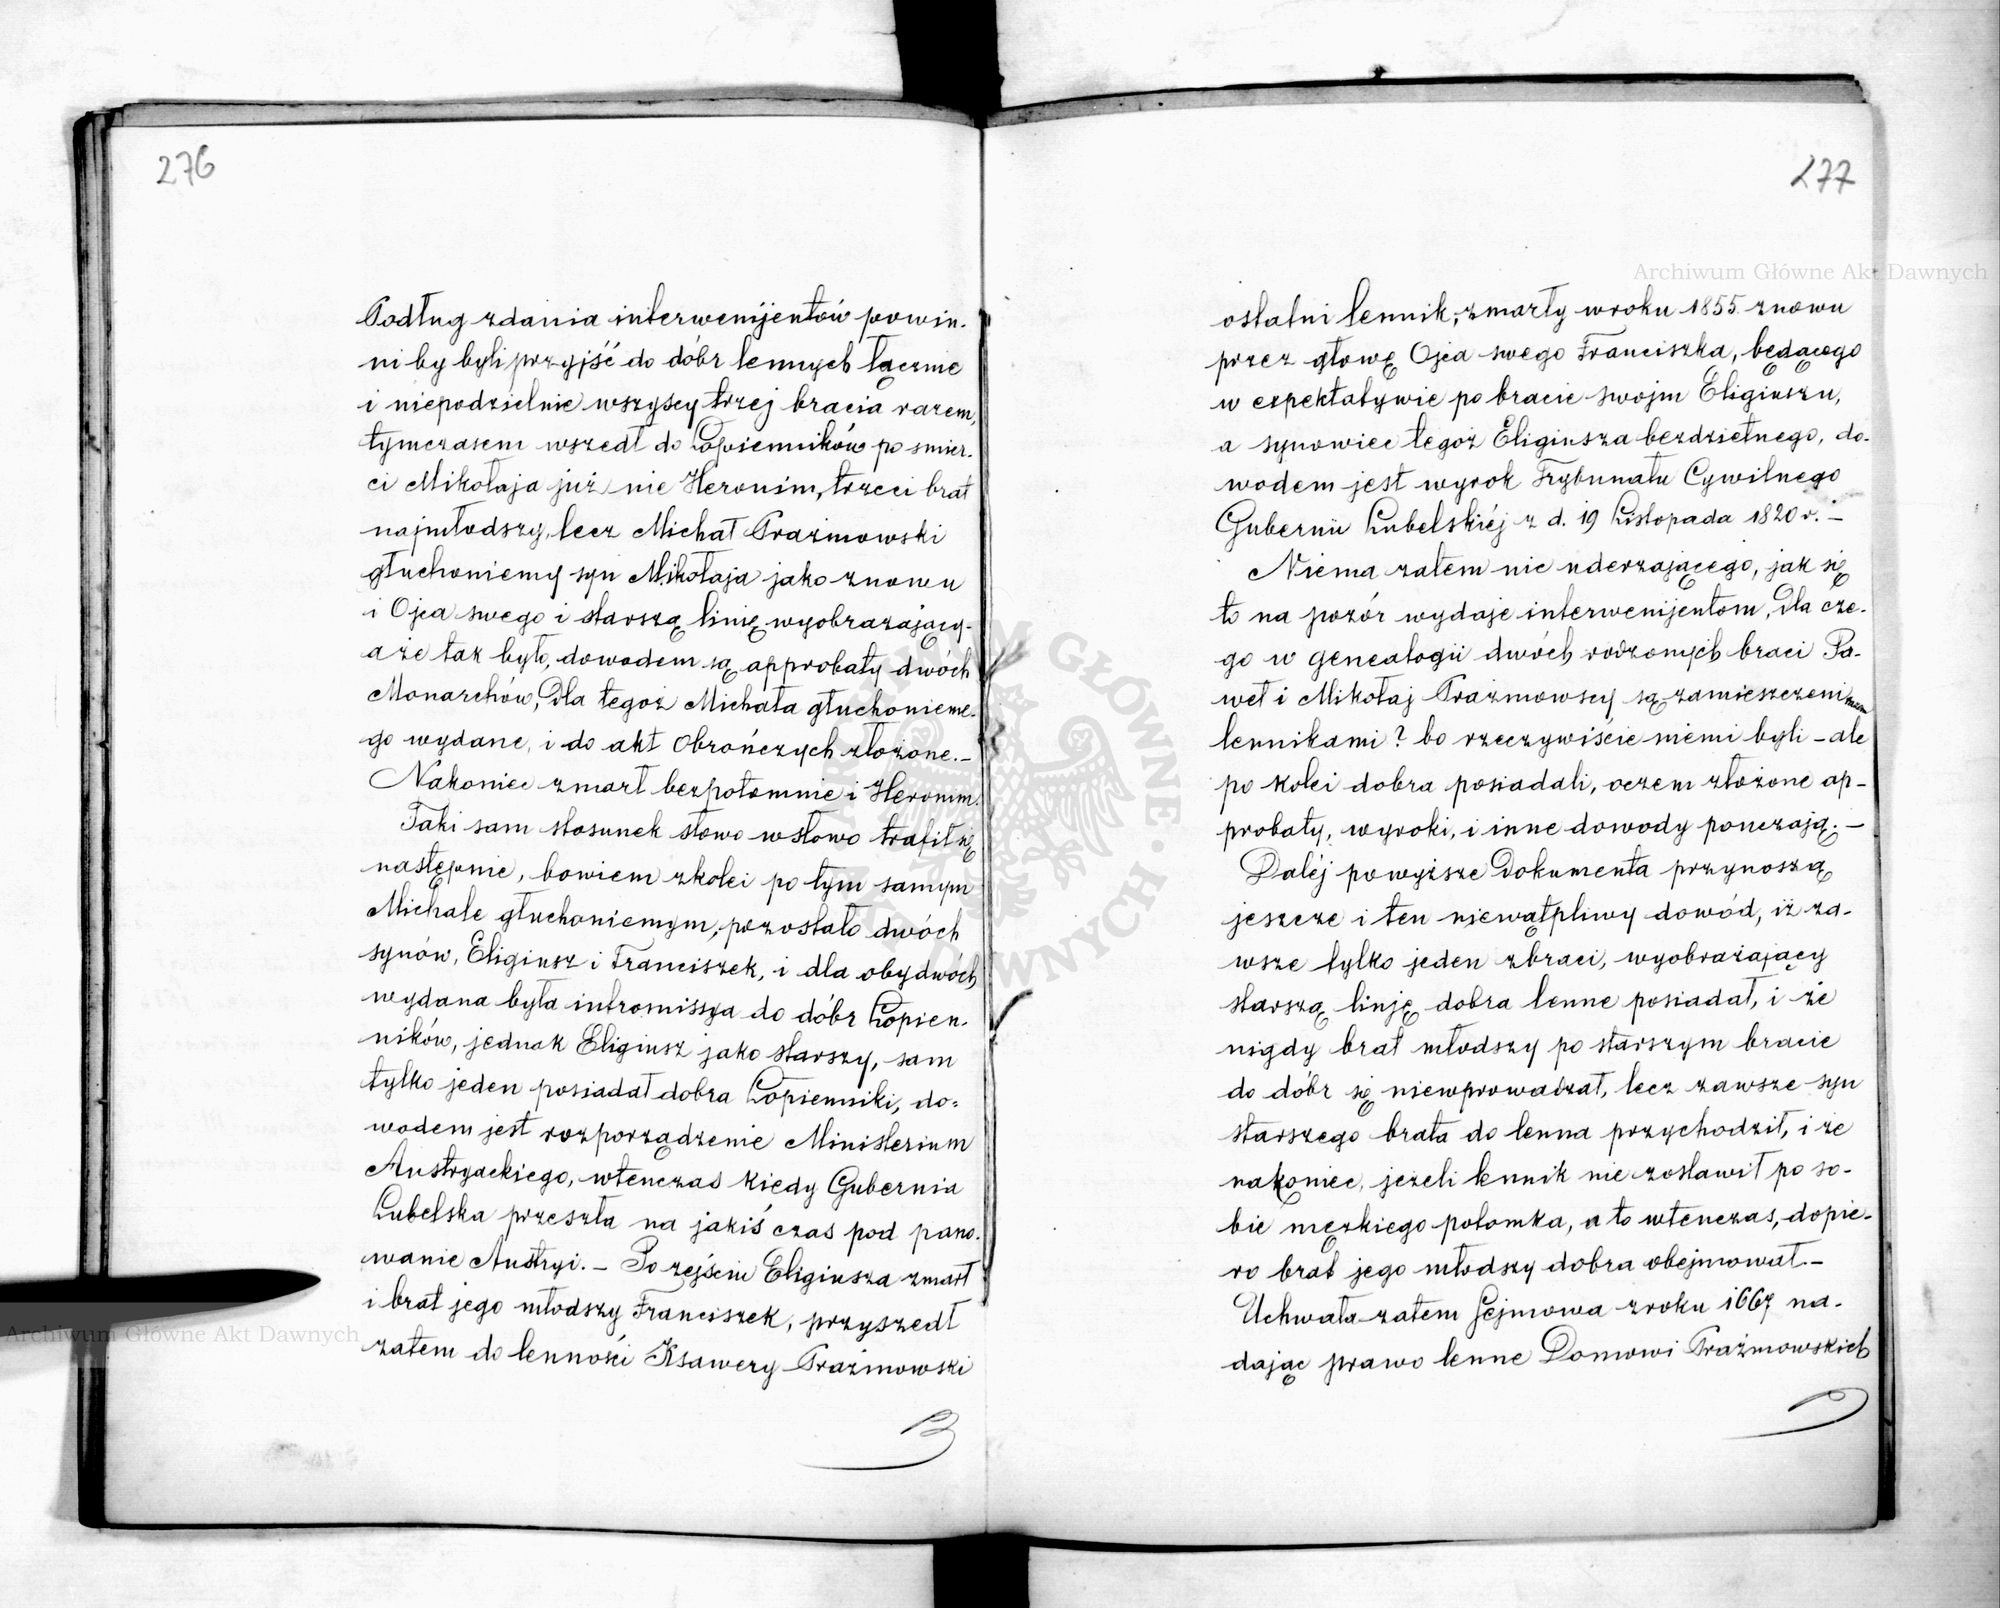 276
Podług zdania interwenijentów powin-
ni by byli przyjść do dóbr lennych łącznie
i niepodzielnie wszyscy trzej bracia razem,
tymczasem wszedł do Łopienników po śmier-
ci Mikołaja już nie Heronim, trzeci brat
najmłodszy, lecz Michał Prażmowski
głuchoniemy syn Mikołaja jako znowu
i Ojca swego i starszą linię wyobrażający-
a że tak było, dowodem są approbaty dwóch
Monarchów, Dla tegoż Michała głuchonieme-
go wydane, i do akt Obrończych złożone.-
Nakoniec zmarł bezpotomnie i Heronim.
Taki sam stosunek słowo w słowo trafił się
następnie, bowiem zkolei po tym samym
Michale głuchoniemym, pozostało dwóch
synów, Eligiusz i Franciszek, i dla obydwóch
wydana była intromissya do dóbr Łopien-
ników, jednak Eligiusz jako starszy, sam
tylko jeden posiadał dobra Łopienniki, do-
wodem jest rozporządzenie Ministerium
Austryackiego, wtenczas kiedy Gubernia
Lubelska przeszła na jakiś czas pod pano-
wanie Austryi.- Po zejściu Eligiusza zmarł
i brat jego młodszy Franciszek, przyszedł
zatem do lenności Ksawery Prażmowski
277
ostatni lennik, zmarły w roku 1855 znowu
przez głowę Ojca swego Franciszka, będącego
w expektatywie po bracie swojm Eligiuszu,
a synowiec tegoż Eligiusza bezdzietnego, do-
wodem jest wyrok Trybunału Cywilnego
Gubernii Lubelskiéj z d. 19 Listopada 1820 r. -
Niema zatem nic uderzającego, jak się
to na pozór wydaje interwenijentom, Dla cze-
go w genealogii dwóch rodzonych braci Pa-
weł i Mikołaj Prażmowscy są zamieszczeni
lennikami? bo rzeczywiście niémi byli - ale
po kolei dobra posiadali, oczem złożone ap-
probaty, wyroki, i inne dowody pouczają. -
Daléj powyższe Dokumenta przynoszą
jeszcze i ten niewątpliwy dowód, iż za-
wsze tylko jeden zbraci, wyobrażający
starszą linję dobra lenne posiadał, i że
nigdy brat młodszy po starszym bracie
do dóbr się niewprowadzał, lecz zawsze syn
starszego brata do lenna przychodził, i że
nakoniec, jeżeli lennik nie zostawił po so-
bie męzkiego potomka, a to wtenczas, dopie-
ro brat jego młodszy dobra obejmował.-
Uchwała zatem Sejmowa z roku 1667 na-
dając prawo lenne Domowi Prażmowskich
Archiwum Główne Akt Dawnych
Archiwum Główne Akt Dawnych